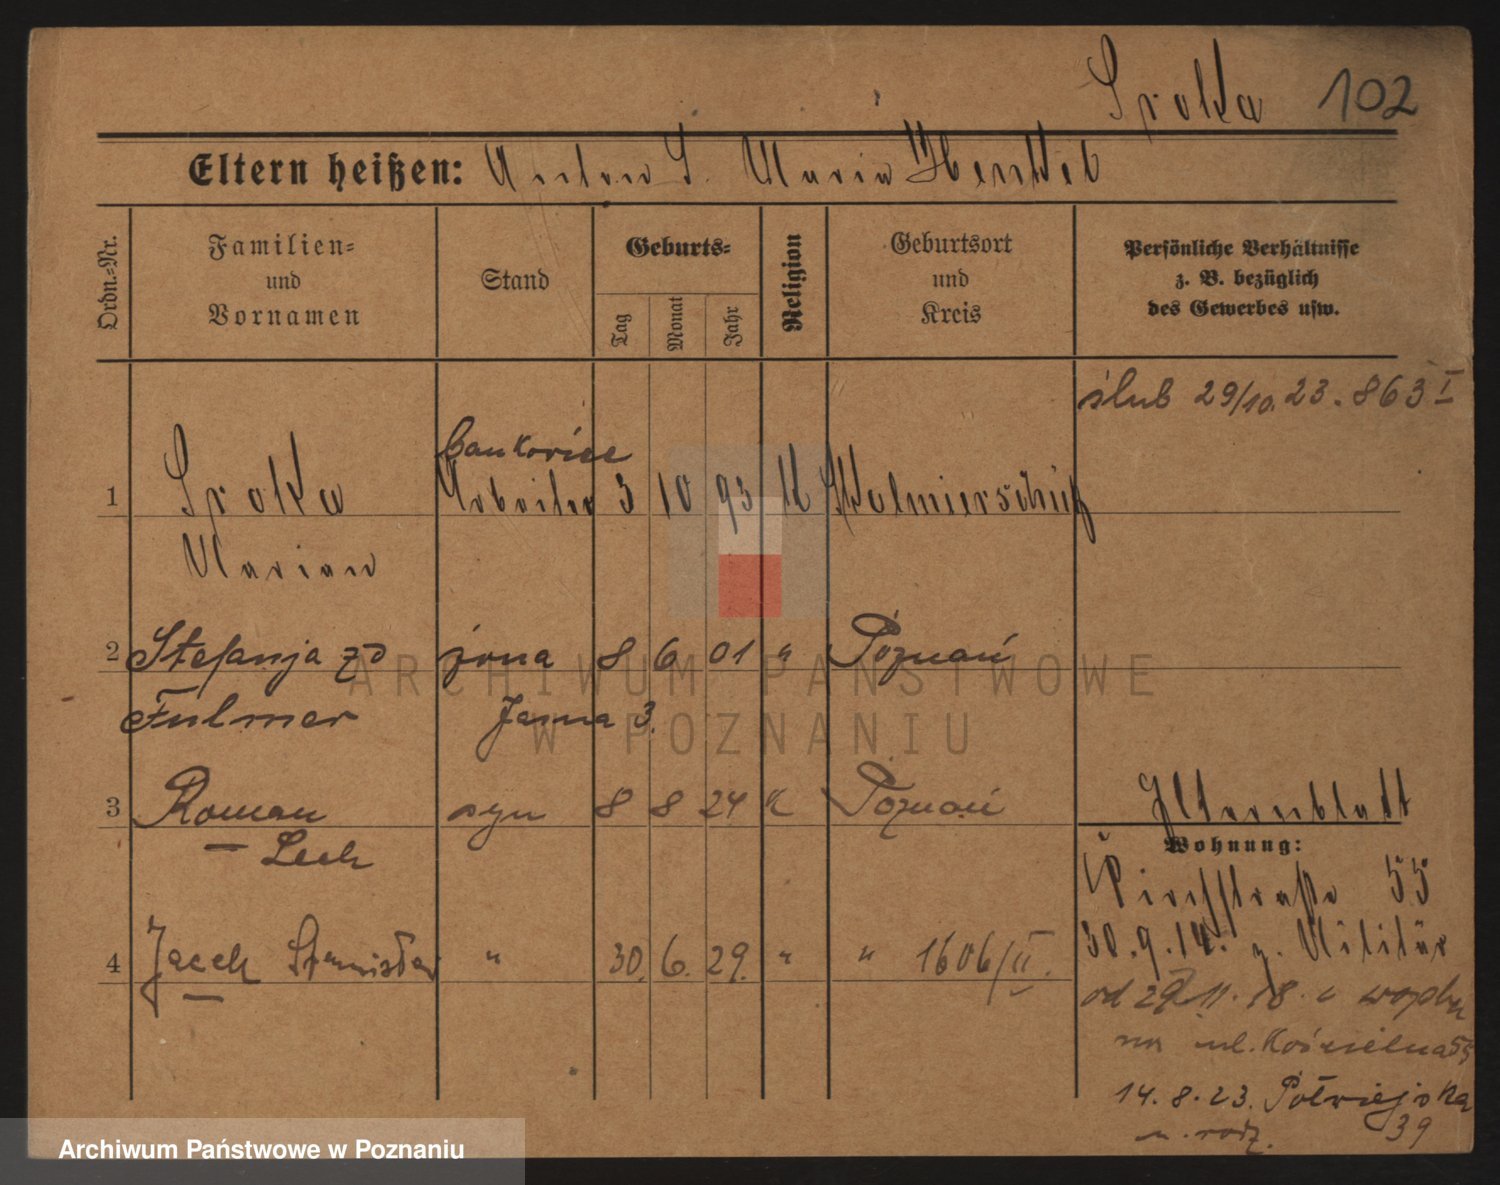 Sroka 102
Eltern heißen: Anton S. Maria
Ordn.-Nr.
Familien-
und
Vornamen
Stand
Geburts-
Tag
Monat
Jahr
Religion
Geburtsort
und
Kreis
Persönliche Verhältnisse
z. B. bezüglich
des Gewerbes usw.
ślub 29/10.23. 863 I
1 Sroka Arbeiter 3 10 93 K
Marian
2 Stefanja zd żona 8 6 01 " Poznań
Fulmer
3 Roman syn 8 8 24 K Poznań
Lech
Elternblatt
Wohnung:
55
4 Jacek Stanisław " 30. 6. 29. " " 1606/II.
30.9.14. z. Militär
od 29.11.18. z wojska
na ul. Kościelna 55
14.8.23. Półwiejska
39
u. rodz.
ARCHIWUM PAŃSTWOWE
W POZNANIU
Archiwum Państwowe w Poznaniu